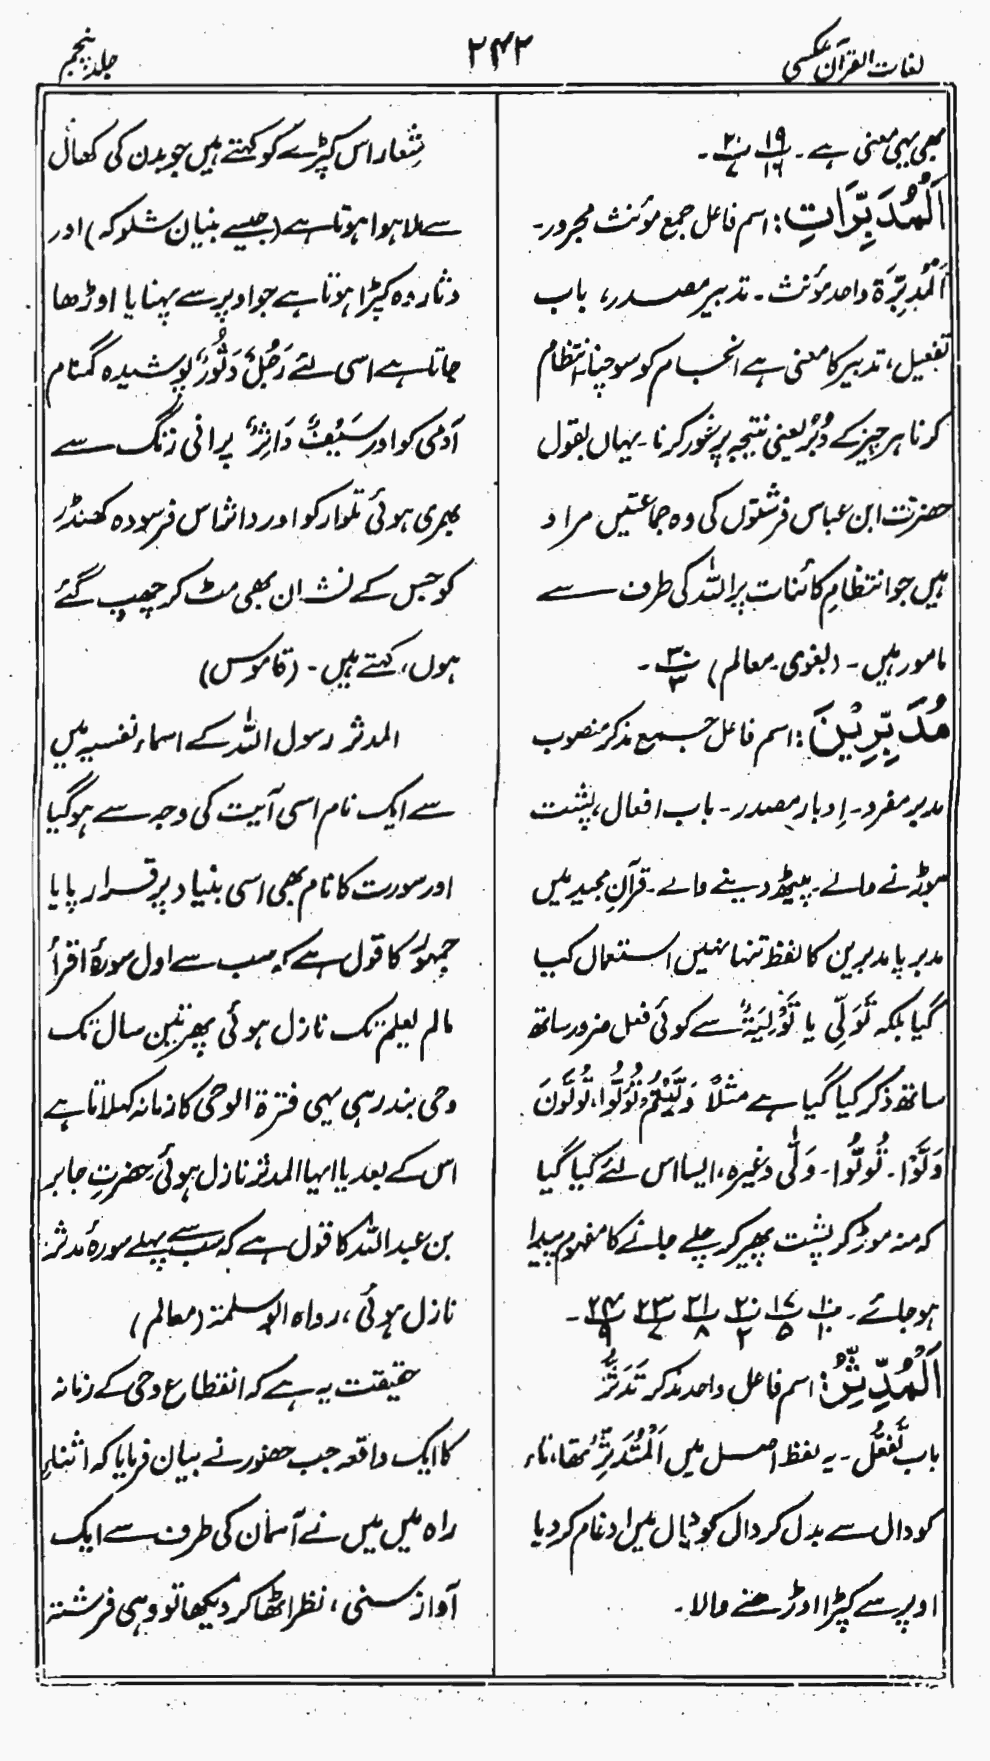 لغات القرآن عکسی
۲۴۲
جلد پنجم
بھی یہی معنی ہے۔ ۱۹/۱۶ ۲۰/۷۔
اَلْمُدَبِّرَاتِ: اسم فاعل جمع مؤنث مجرور۔
اَلْمُدَبِّرَۃ واحد مؤنث۔ تدبیر مصدر، باب
تفعیل، تدبیر کا معنی ہے انجام کو سوچنا انتظام
کرنا ہر چیز کے دُبُر یعنی نتیجہ پر غور کرنا۔ یہاں بقول
حضرت ابن عباس فرشتوں کی وہ جماعتیں مراد
ہیں جو انتظامِ کائنات پر اللہ کی طرف سے
مامور ہیں۔ (بغوی۔ معالم) ۳۰/۳۔
مُدْبِرِیْنَ: اسم فاعل جمع مذکر منصوب
مدبر مفرد۔ اِدبار مصدر۔ باب افعال، پشت
موڑنے والے۔ پیٹھ دینے والے۔ قرآنِ مجید میں
مدبر یا مدبرین کا لفظ تنہا نہیں استعمال کیا
گیا بلکہ تَوَلّٰی یا تَوْلِیَۃٌ سے کوئی فعل ضرور ساتھ
ساتھ ذکر کیا گیا ہے مثلاً وَلَّیْتُمْ، تُوَلُّوا، تُوَلُّوْنَ
وَلَّوْا۔ تُوَلُّوا۔ وَلّٰی وغیرہ، ایسا اس لئے کیا گیا
کہ منہ موڑ کر پشت پھیر کر چلے جانے کا مفہوم پیدا
ہو جائے۔ ۱۰/۱۰ ۱۷/۵ ۲۰/۲ ۲۱/۸ ۲۳/۷ ۲۴/۹۔
اَلْمُدَّثِّرُ: اسم فاعل واحد مذکر تَدَثُّرٌ
باب تَفَعُّل۔ یہ لفظ اصل میں اَلْمُتَدَثِّرُ تھا، تاء
کو دال سے بدل کر دال کو دال میں ادغام کر دیا
اوپر سے کپڑا اوڑھنے والا۔
شِعار اس کپڑے کو کہتے ہیں جو بدن کی کھال
سے ملا ہوا ہوتا ہے (جیسے بنیان شلوکہ) اور
دثار وہ کپڑا ہوتا ہے جو اوپر سے پہنا یا اوڑھا
جاتا ہے اسی لئے رَجُلٌ دَثُوْرٌ پوشیدہ گمنام
آدمی کو اور سَیْفٌ دَاثِرٌ پرانی زنگ سے
بھری ہوئی تلوار کو اور داثر اس فرسودہ کھنڈر
کو جس کے نشان بھی مٹ کر چھپ گئے
ہوں، کہتے ہیں۔ (قاموس)
المدثر رسول اللہ کے اسماء نفسیہ میں
سے ایک نام اسی آیت کی وجہ سے ہو گیا
اور سورت کا نام بھی اسی بنیاد پر قرار پایا
جمہور کا قول ہے کہ سب سے اول سورۂ اقرأ
مالم یعلم تک نازل ہوئی پھر تین سال تک
وحی بند رہی یہی فترۃ الوحی کا زمانہ کہلاتا ہے
اس کے بعد یا ایہا المدثر نازل ہوئی حضرتِ جابر
بن عبداللہ کا قول ہے کہ سب سے پہلے سورۂ مدثر
نازل ہوئی، رواہ ابو سلمۃ (معالم)
حقیقت یہ ہے کہ انقطاعِ وحی کے زمانہ
کا ایک واقعہ جب حضور نے بیان فرمایا کہ اثناءِ
راہ میں میں نے آسمان کی طرف سے ایک
آواز سنی، نظر اٹھا کر دیکھا تو وہی فرشتہ